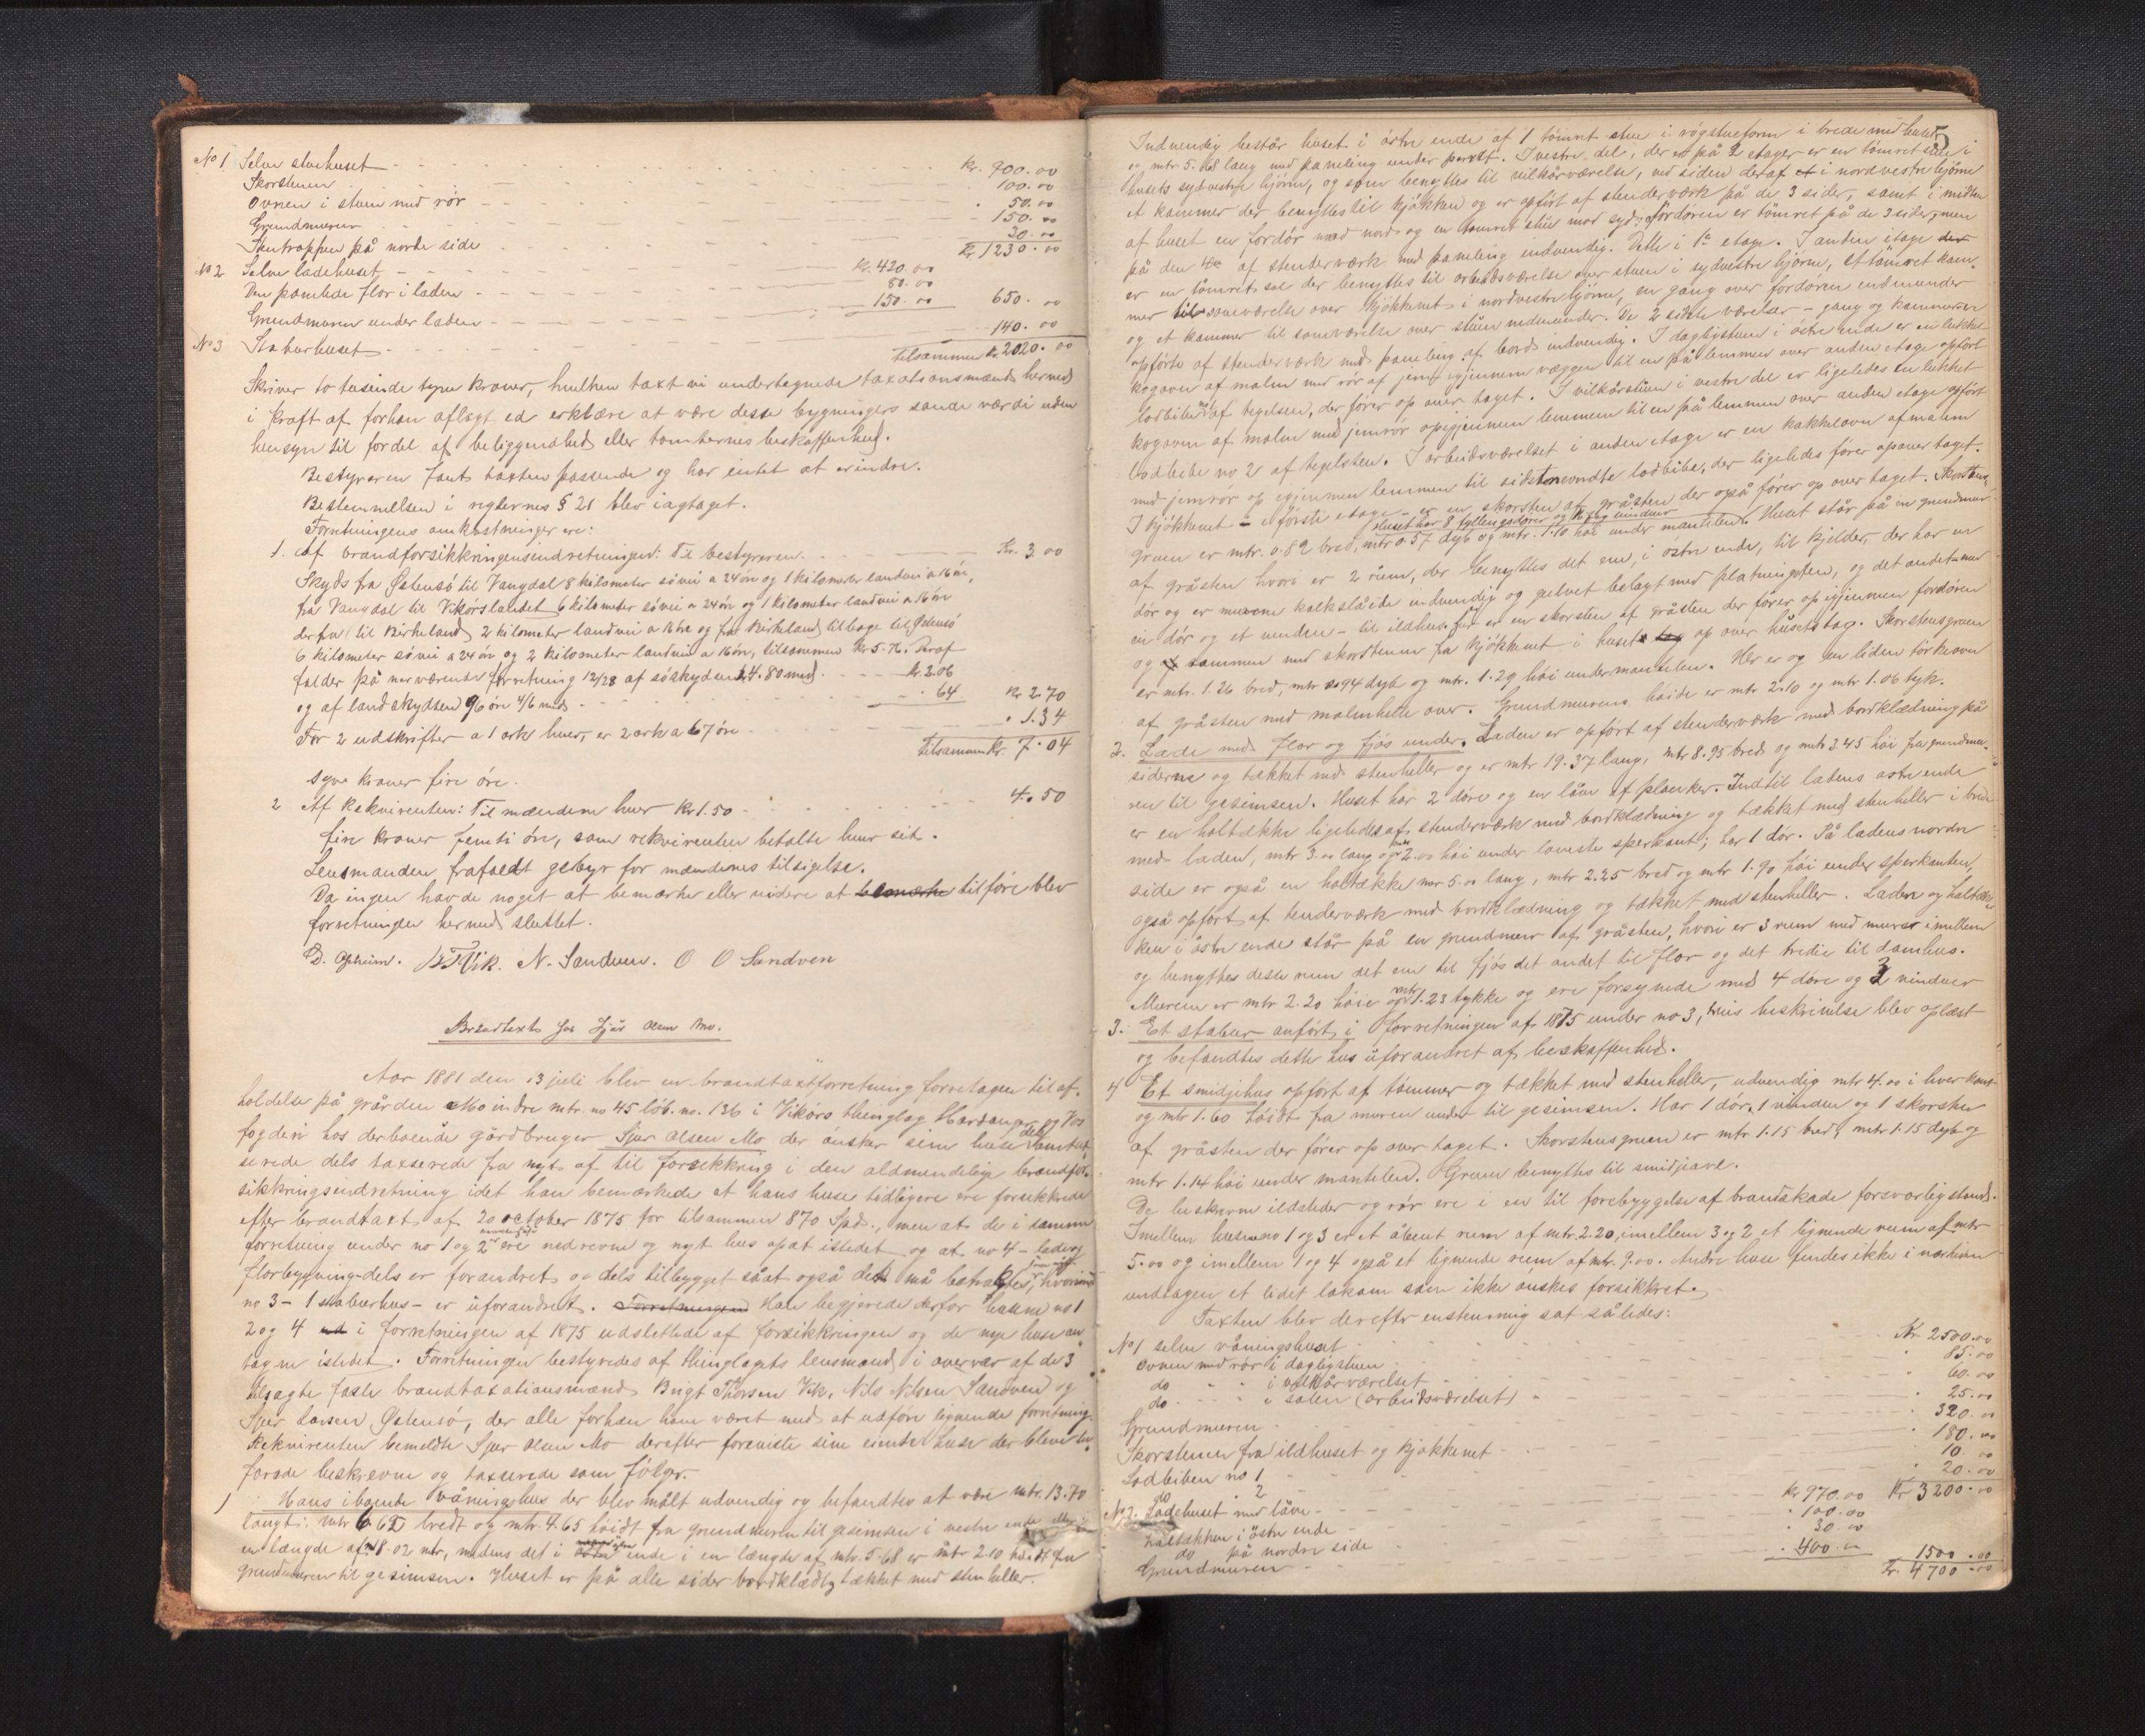 No 1 Selve stuehuset - - - Kr. 900.00
Skorstenen - - - 100.00
Ovnen i stuen med rør - - - 50.00
Grundmuren - - - 150.00
Stentrappen på nordre side - - - 30.00
Kr. 1230.00
No 2 Selve ladehuset - - - Kr. 420.00
Den panelede flor i laden - - - 80.00
Grundmuren under laden - - - 150.00 650.00
No 3 Staburhuset - - - 140.00
Tilsammen Kr. 2020.00
Skriver to tusinde tyve kroner, hvilken taxt vi undertegnede taxationsmænd herved
i kraft af forhen aflagt ed erklære at være disse bygningers sande værdi uden
hensyn til fordel af beliggenhed eller tomternes beskaffenhed.
Bestyreren fandt taxten passende og har intet at erindre.
Bestemmelsen i reglernes § 21 blev iagtaget.
Forretningens omkostninger ere:
1. Af brandforsikkringsindretningen: Til bestyreren - - - Kr. 3.00
Skyds fra Østensø til Vangdal 8 kilometer søvei a 24 øre og 1 kilometer landvei a 16 øre,
fra Vangdal til Vikørslandet 6 kilometer søvei a 24 øre og 1 kilometer landvei a 16 øre
derfra til Birkeland 2 kilometer landvei a 16 øre og fra Birkeland tilbage til Østensø
6 kilometer søvei a 24 øre og 2 kilometer landvei a 16 øre, tilsammen Kr 5.76. Heraf
falder på nærværende forretning 12/28 af søskydsen 4.80 med - - - Kr. 2.06
og af landskydsen 96 øre 4/6 med - - - 64 Kr 2.70
For 2 udskrifter a 1 ark hver, er 2 ark a 67 øre - - - 1.34
Tilsammen Kr. 7.04
syv kroner fire øre.
2 Af Rekvirenten: Til mændene hver Kr 1.50 - - - 4.50
fire kroner femti øre, som rekvirenten betalte hver sit.
Lensmanden frafaldt gebyr for mændenes tilsigelse.
Da ingen havde noget at bemærke eller videre at bemærke tilføre blev
forretningen hermed sluttet.
D. Opheim. B T Vik. N. Sandven. O O Sandven
Brandtaxt hos Sjur Olsen Mo.
Aar 1881 den 13 juli blev en brandtaxtforretning foretagen til af-
holdelse på gården Mo indre mtr. no 45 løb. no. 136 i Vikørs thinglag Hardanger og Vos
fogderi hos derboende gårdbruger Sjur Olsen Mo der ønsker sine huse dels omtax-
serede dels taxserede fra nyt af til forsikkring i den almindelige brandfor-
sikkringsindretning idet han bemærkede at hans huse tidligere ere forsikkrede
efter brandtaxt af 20 october 1875 for tilsammen 870 Spd., men at de i samme
forretning under no 1 og 2 ere nedrevne og nyt hus opsat istedet og at no 4 - lade og
florbygning - dels er forandret og dels tilbygget såat også det må betragtes, hvorimod
no 3 - 1 staburhus - er uforandret. Forretningen Han begjærede derfor husene no 1
2 og 4 i forretningen af 1875 udslettede af forsikkringen og de nye huse an-
tagne istedet. Forretningen bestyredes af thinglagets lensmand i overvær af de 3
tilsagte faste brandtaxationsmænd Brigt Thorsen Vik, Nils Nilsen Sandven og
Sjur Larsen Østensø, der alle forhen have været med at udføre lignende forretning.
Rekvirenten bemeldte Sjur Olsen Mo derefter foreviste sine huse der bleve be-
farede beskrevne og taxserede som følger.
1 Hans iboende våningshus der blev målt udvendig og befandtes at være mtr. 13.70
langt: mtr 6.62 bredt og mtr 4.65 høidt fra grundmuren til gesimsen i vestre ende
en længde af 8.02 mtr, medens det i østre ende i en længde af mtr. 5.68 er mtr 2.10 høidt fra
grundmuren til gesimsen. Huset er på alle sider bordklædt og tækket med stenheller.
5
Indvendig består huset i østre ende af 1 tømret stue i røgstueform i brede med huset
og mtr 5.68 lang med paneling under. I vestre del, der er på 2 etager er en tømret stue i
husets sydvestre hjørne, og som benyttes til vilkårværelse, ved siden deraf i nordvestre hjørne
et kammer der benyttes til kjøkken og er opført af stenderværk på de 3 sider, samt i midten
af huset en fordør mod nord og en tømret stue mod syd. Fordøren er tømret på de 3 sider, men
på den 4de af stenderværk med paneling indvendig. Dette i 1ste etage. I anden etage
er en tømret sal der benyttes til arbeidsværelse over stuen i sydvestre hjørne, et tømret kam-
mer til soveværelse over kjøkkenet i nordvestre hjørne, en gang over fordøren nedenunder
og et kammer til soveværelse over stuen nedenunder. De 2 sidste værelser - gang og kammeret
opførte af stenderværk med paneling af bord indvendig. I dagligstuen i østre ende er en lukket
kogovn af malm med rør af jern igjennem væggen til en på lemmen over anden etage opført
lodbibe af tegelsten, der fører op over taget. I vilkårstuen i vestre del er ligeledes en lukket
kogovn af malm med jernrør op igjennem lemmen til en på lemmen over anden etage opført
lodbibe no 2 af tegelsten. I arbeidsværelset i anden etage er en kakkelovn af malm
med jernrør op igjennem lemmen til sidstnævndte lodbibe, der ligeledes fører op over taget.
I kjøkkenet - i første etage - er en skorsten af gråsten der også fører op over taget. Skorstens-
gruen er mtr. 0.82 bred, mtr 0.57 dyb og mtr. 1.10 høi under mantelen. Huset har 8 fyllingsdøre og 16 fag vinduer Huset står på en grundmur
af gråsten hvori er 2 rum, der benyttes det ene, i østre ende, til kjelder, der har en
dør og er murene kalkslåede indvendig og gulvet belagt med, og det andet med
en dør og et vindue - til ildhus. Her er en skorsten af gråsten der fører op igjennem fordøren
og sammen med skorstenen fra kjøkkenet i huset op over husets tag. Skorstensgruen
er mtr. 1.26 bred, mtr 0.94 dyb og mtr. 1.29 høi under mantelen. Her er og en liden tørkeovn
af gråsten med malmhelle over. Grundmurens høide er mtr 2.10 og mtr 1.06 tyk.
2. Lade med flor og fjøs under. Laden er opført af stenderværk med bordklædning på
siderne og tækket med stenheller og er mtr 19.37 lang, mtr 8.95 bred og mtr 3.45 høi fra grundmu-
ren til gesimsen. Huset har 2 døre og en låve af planker. Indtil ladens østre ende
er en haltække ligeledes af stenderværk med bordklædning og tækket med stenheller i brede
med laden, mtr 3.00 lang og mtr 2.00 høi under laveste sperkant; har 1 dør. På ladens nordre
side er også en haltække mtr 5.00 lang, mtr 2.25 bred og mtr 1.90 høi under sperkanten,
også opført af stenderværk med bordklædning og tækket med stenheller. Laden og haltæk-
ken i østre ende står på en grundmur af gråsten, hvori er 3 rum med murer imellem
og benyttes disse rum det ene til fjøs det andet til flor og det tredie til damhus.
Muren er mtr 2.20 høie og mtr 1.23 tykke og ere forsynede med 4 døre og 3 vinduer
3. Et stabur anført i forretningen af 1875 under no 3, hvis beskrivelse blev oplæst
og befandtes dette hus uforandret af beskaffenhed.
4 Et smidjehus opført af tømmer og tækket med stenheller, udvendig mtr 4.00 i hver kant
og mtr 1.60 høidt fra muren under til gesimsen. Har 1 dør, 1 vindue og 1 skorsten
af gråsten der fører op over taget. Skorstensgruen er mtr 1.15 bred, mtr 1.15 dyb og
mtr 1.14 høi under mantelen. Gruen benyttes til smidjeavl.
De beskrevne ildsteder og rør ere i en til forebyggelse af brandskade forsvarlig stand.
Imellem husene no 1 og 3 er et åbent rum af mtr. 2.20, imellem 3 og 2 et lignende rum af mtr
5.00 og imellem 1 og 4 også et lignende rum af mtr. 9.00. Andre huse findes ikke i nærheden
undtagen et lidet lokum som ikke ønskes forsikkret.
Taxten blev derefter enstemmig sat således:
No 1 selve våningshuset - - - Kr. 2500.00
Ovnen med rør i dagligstuen - - - 85.00
do - - i vilkårværelset - - - 60.00
do - - i salen (arbeidsværelset) - - - 25.00
Grundmuren - - - 320.00
Skorstenen fra ildhuset og kjøkkenet - - - 180.00
Lodbiben no 1 - - - 10.00
do " 2 - - - 20.00
Kr 3200.00
No 2. Ladehuset med låve - - - Kr 970.00
Haltækken i østre ende - - - 100.00
do på nordre side - - - 30.00
Grundmuren - - - 400.00 1500.00
Kr. 4700.00